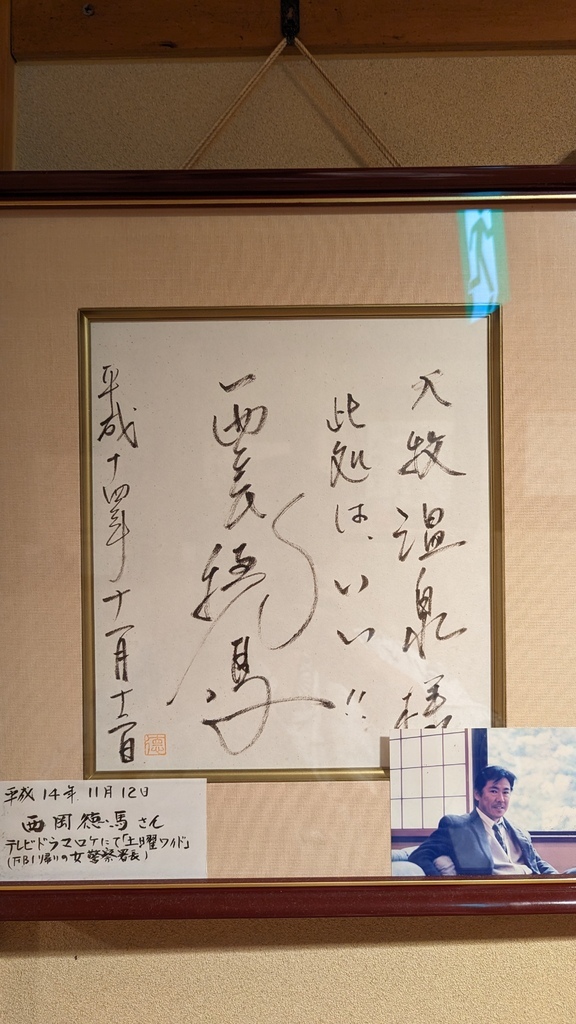 大牧温泉様
此処は、いい!!
西岡德馬
平成十四年十一月十二日
德
平成14年11月12日
西岡德馬さん
テレビドラマロケにて「土曜ワイド」
(FBI帰りの女警察署長)